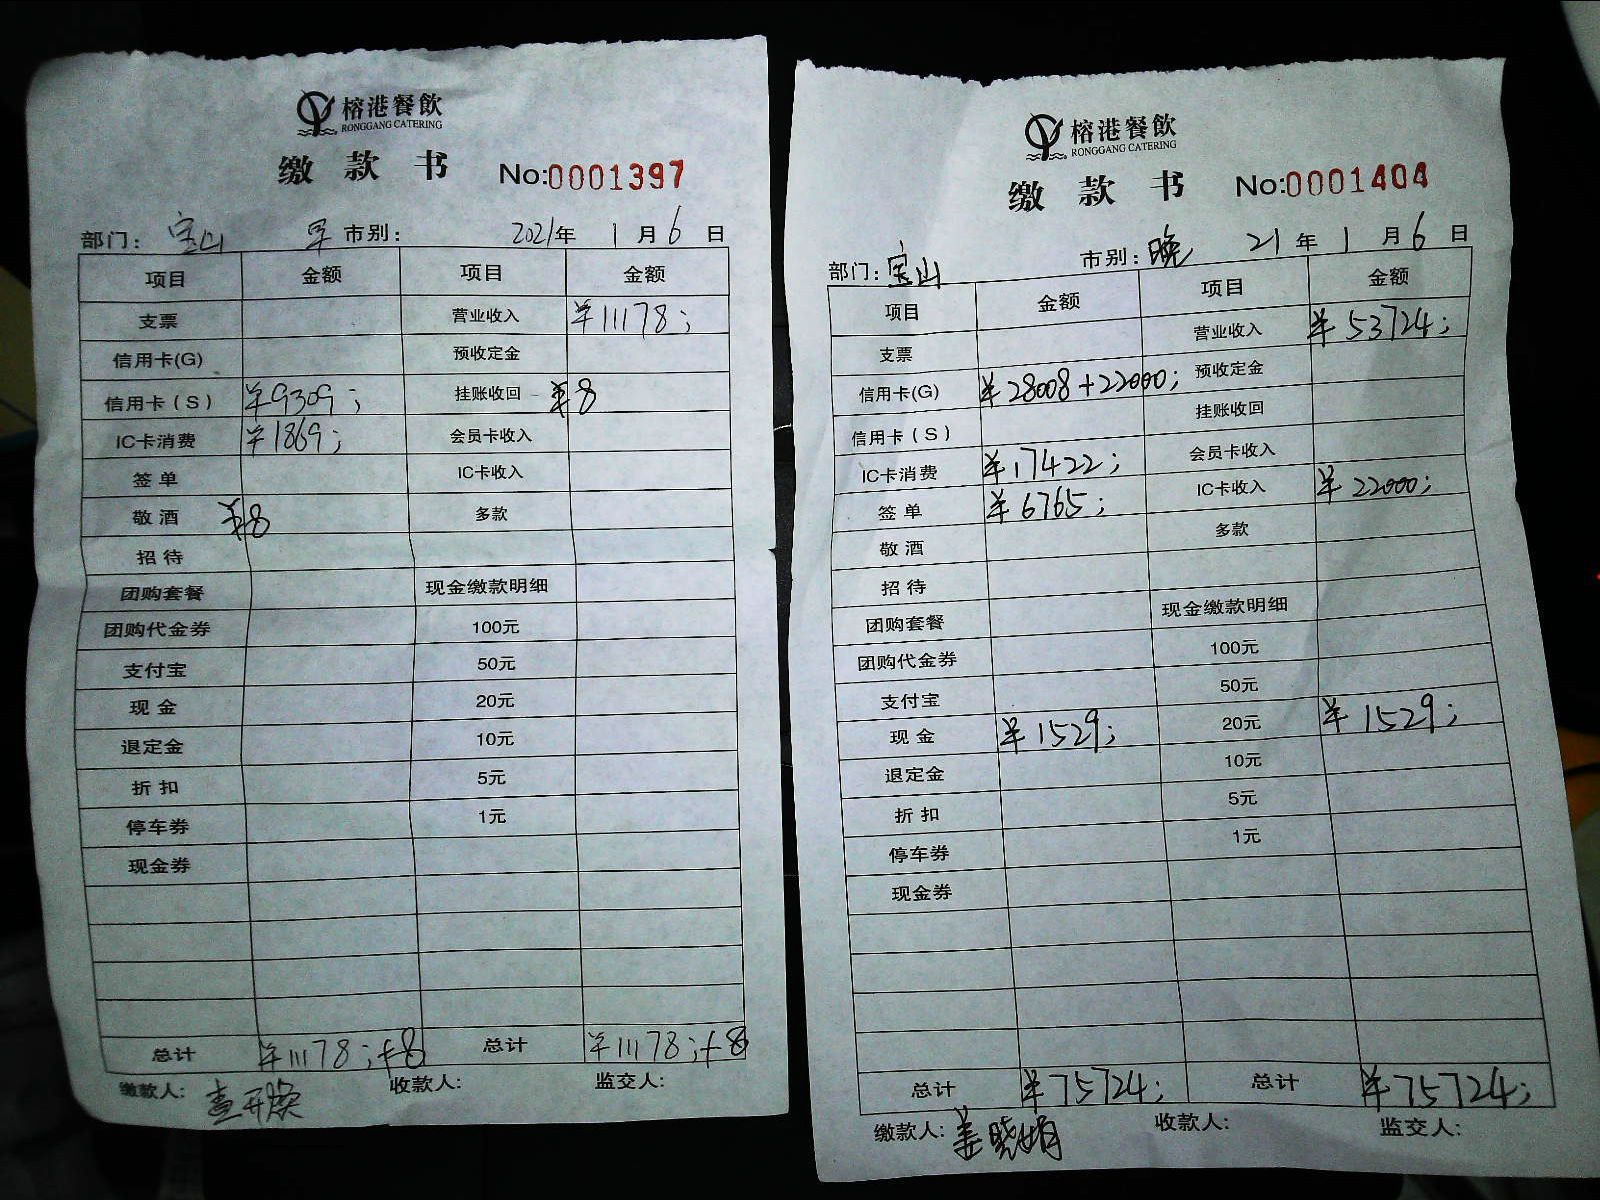 榕港餐飲
RONGGANG CATERING
缴款书 No:0001397
部门: 宝山 早市别: 2021年 1月 6日
项目 金额 项目 金额
支票 营业收入 ¥11178;
信用卡(G) 预收定金
信用卡(S) ¥9309; 挂账收回 ¥8
IC卡消费 ¥1869; 会员卡收入
签单 IC卡收入
敬酒 ¥8 多款
招待
团购套餐 现金缴款明细
团购代金券 100元
支付宝 50元
现金 20元
退定金 10元
折扣 5元
停车券 1元
现金券
总计 ¥11178;+8 总计 ¥11178;+8
缴款人: 收款人: 监交人:
榕港餐飲
RONGGANG CATERING
缴款书 No:0001404
部门:宝山 市别:晚 21年 1月 6日
项目 金额 项目 金额
支票 营业收入 ¥53724;
信用卡(G) ¥28008+22000; 预收定金
信用卡(S) 挂账收回
IC卡消费 ¥17422; 会员卡收入
签单 ¥6765; IC卡收入 ¥22000;
敬酒 多款
招待
团购套餐 现金缴款明细
团购代金券 100元
支付宝 50元
现金 ¥1529; 20元 ¥1529;
退定金 10元
折扣 5元
停车券 1元
现金券
总计 ¥75724; 总计 ¥75724;
缴款人:姜晓娟 收款人: 监交人: